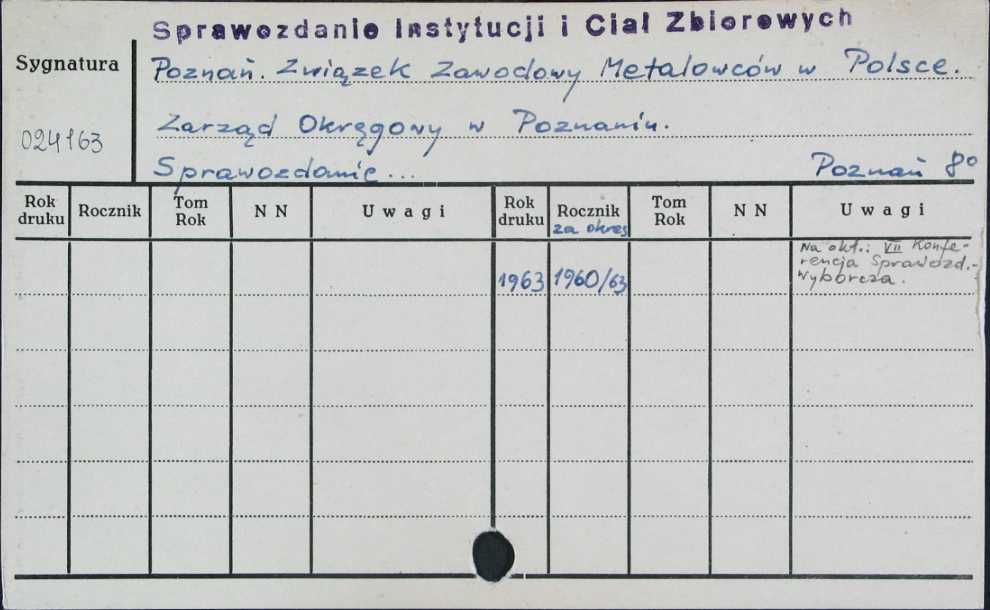 Sprawozdanie Instytucji i Ciał Zbiorowych
Sygnatura
Poznań. Związek Zawodowy Metalowców w Polsce.
024163
Zarząd Okręgowy w Poznaniu.
Sprawozdanie... Poznań 8°
Rok druku Rocznik Tom Rok N N Uwagi Rok druku Rocznik za okres Tom Rok N N Uwagi
Na okł.: VII Konfe-
rencja Sprawozd.-
1963 1960/63 Wyborcza.